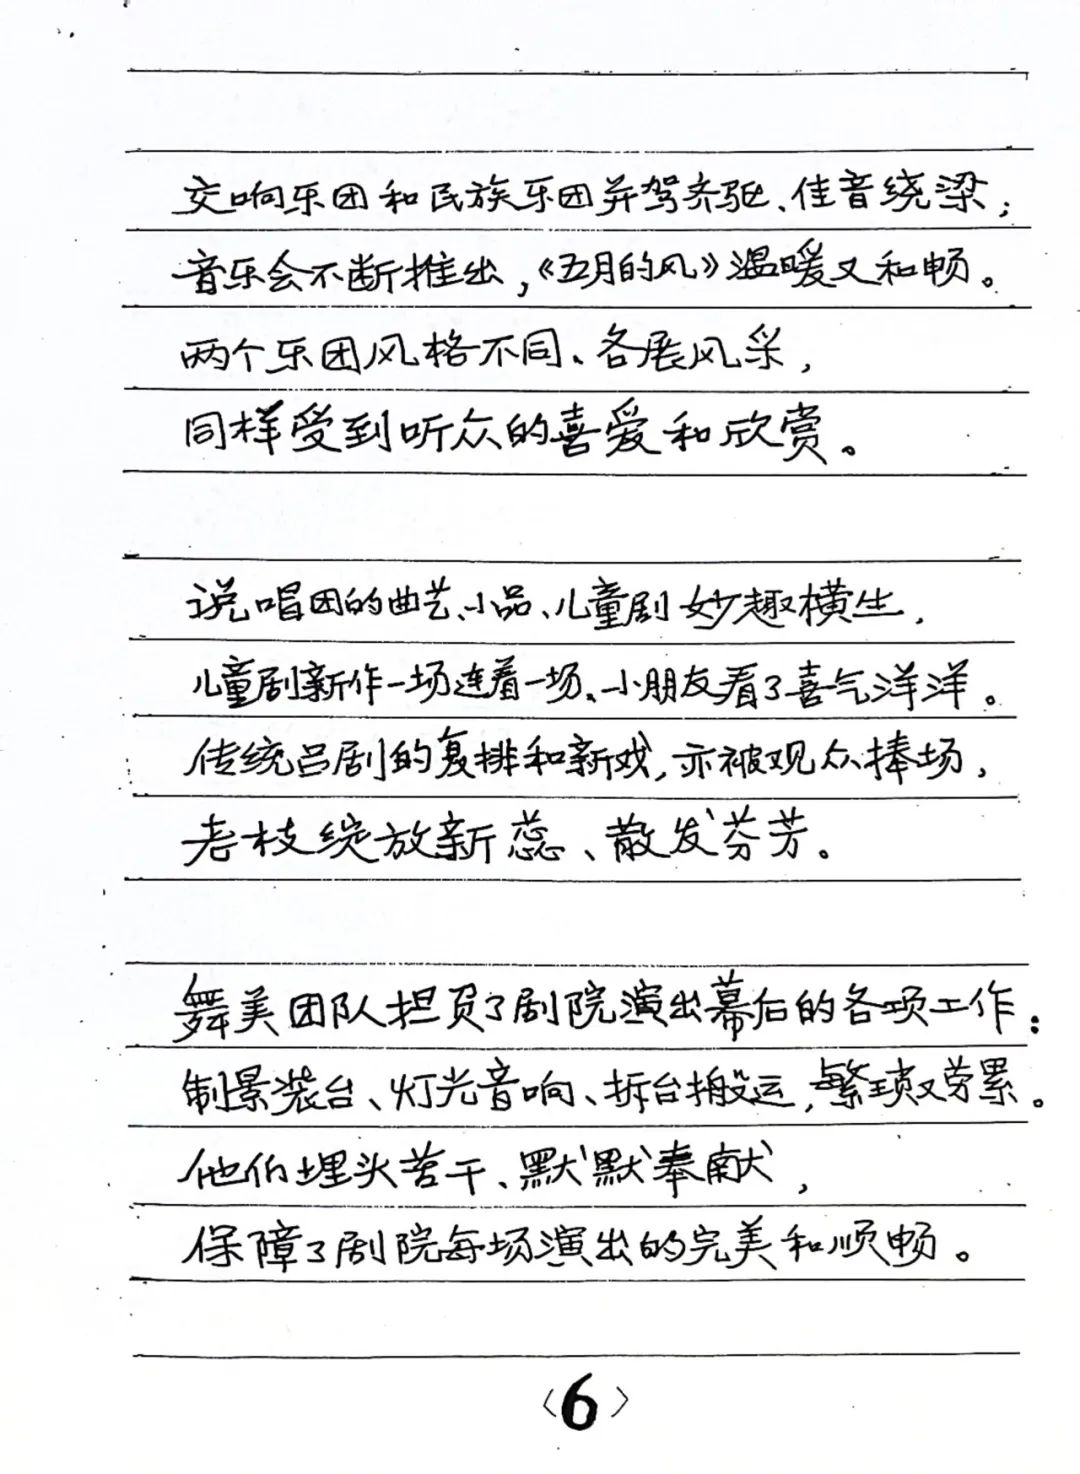 交响乐团和民族乐团并驾齐驱、佳音绕梁；
音乐会不断推出，《五月的风》温暖又和畅。
两个乐团风格不同、各展风采，
同样受到听众的喜爱和欣赏。
说唱团的曲艺、小品、儿童剧妙趣横生，
儿童剧新作一场连着一场、小朋友看了喜气洋洋。
传统吕剧的复排和新戏，亦被观众捧场，
老枝绽放新蕊、散发芬芳。
舞美团队担负了剧院演出幕后的各项工作：
制景装台、灯光音响、拆台搬运，繁琐又劳累。
他们埋头苦干、默默奉献，
保障了剧院每场演出的完美和顺畅。
〈6〉